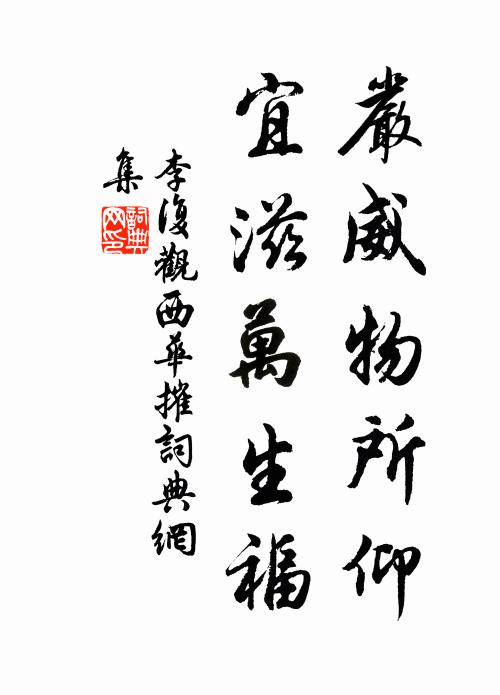 嚴威物所仰
宜滋萬生福
李復觀西華摧詞典網
集
詞典网印